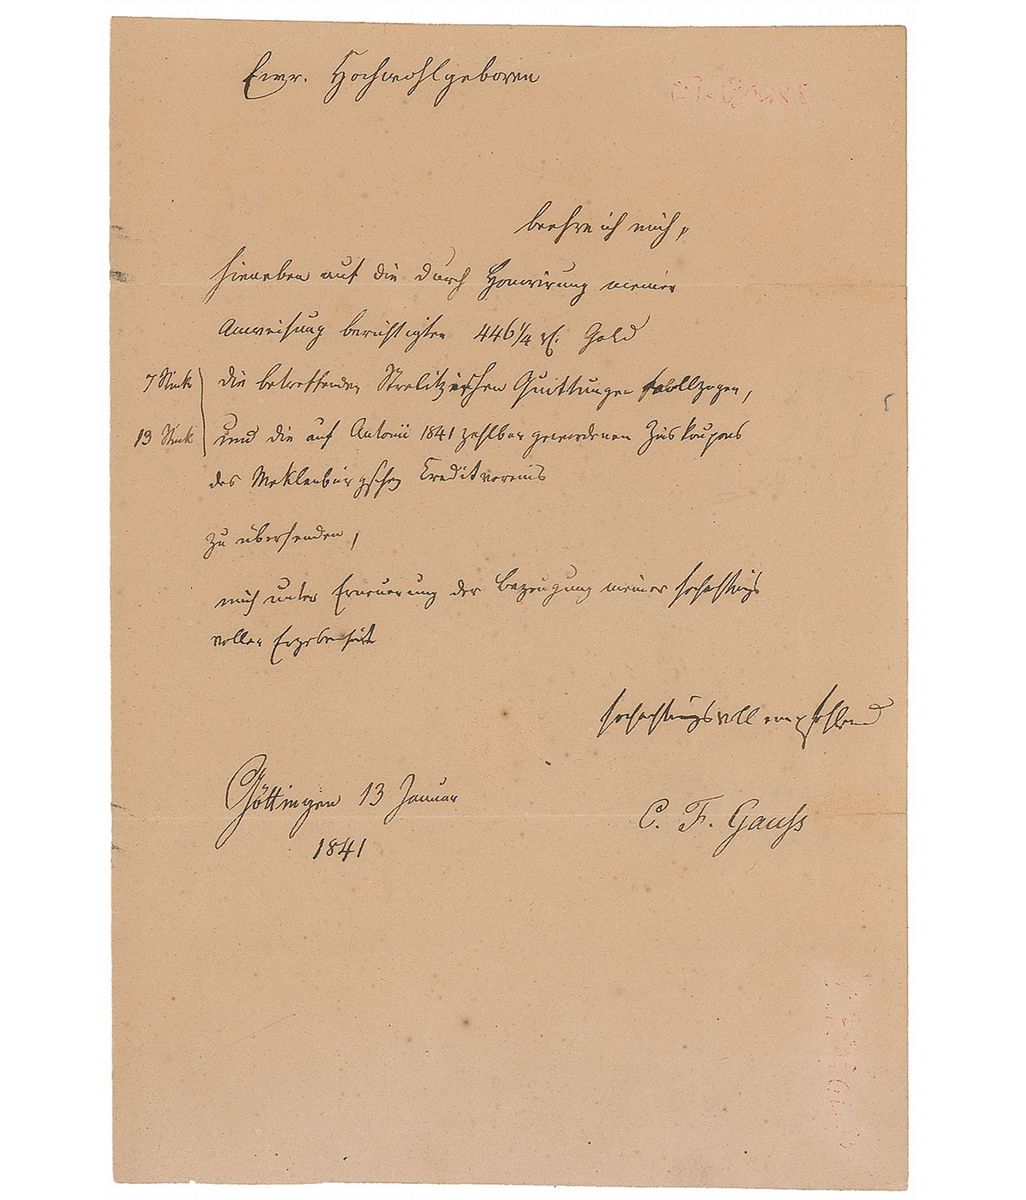 Ewr. Hochwohlgeboren
beehre ich mich,
hieneben auf die durch Honorirung meiner
Anweisung berichtigten 446 1/4 rt. Gold
7 Stück die betreffenden Strelitzischen Quittungen vollzogen,
13 Stück und die auf Antonii 1841 zahlbar gewordenen Zinskoupons
des Meklenburgschen Creditvereins
zu übersenden,
mich unter Erneuerung der Bezeugung meiner hochachtungs
vollen Ergebenheit
hochachtungsvoll empfehlend
Göttingen 13 Januar
1841
C. F. Gauss